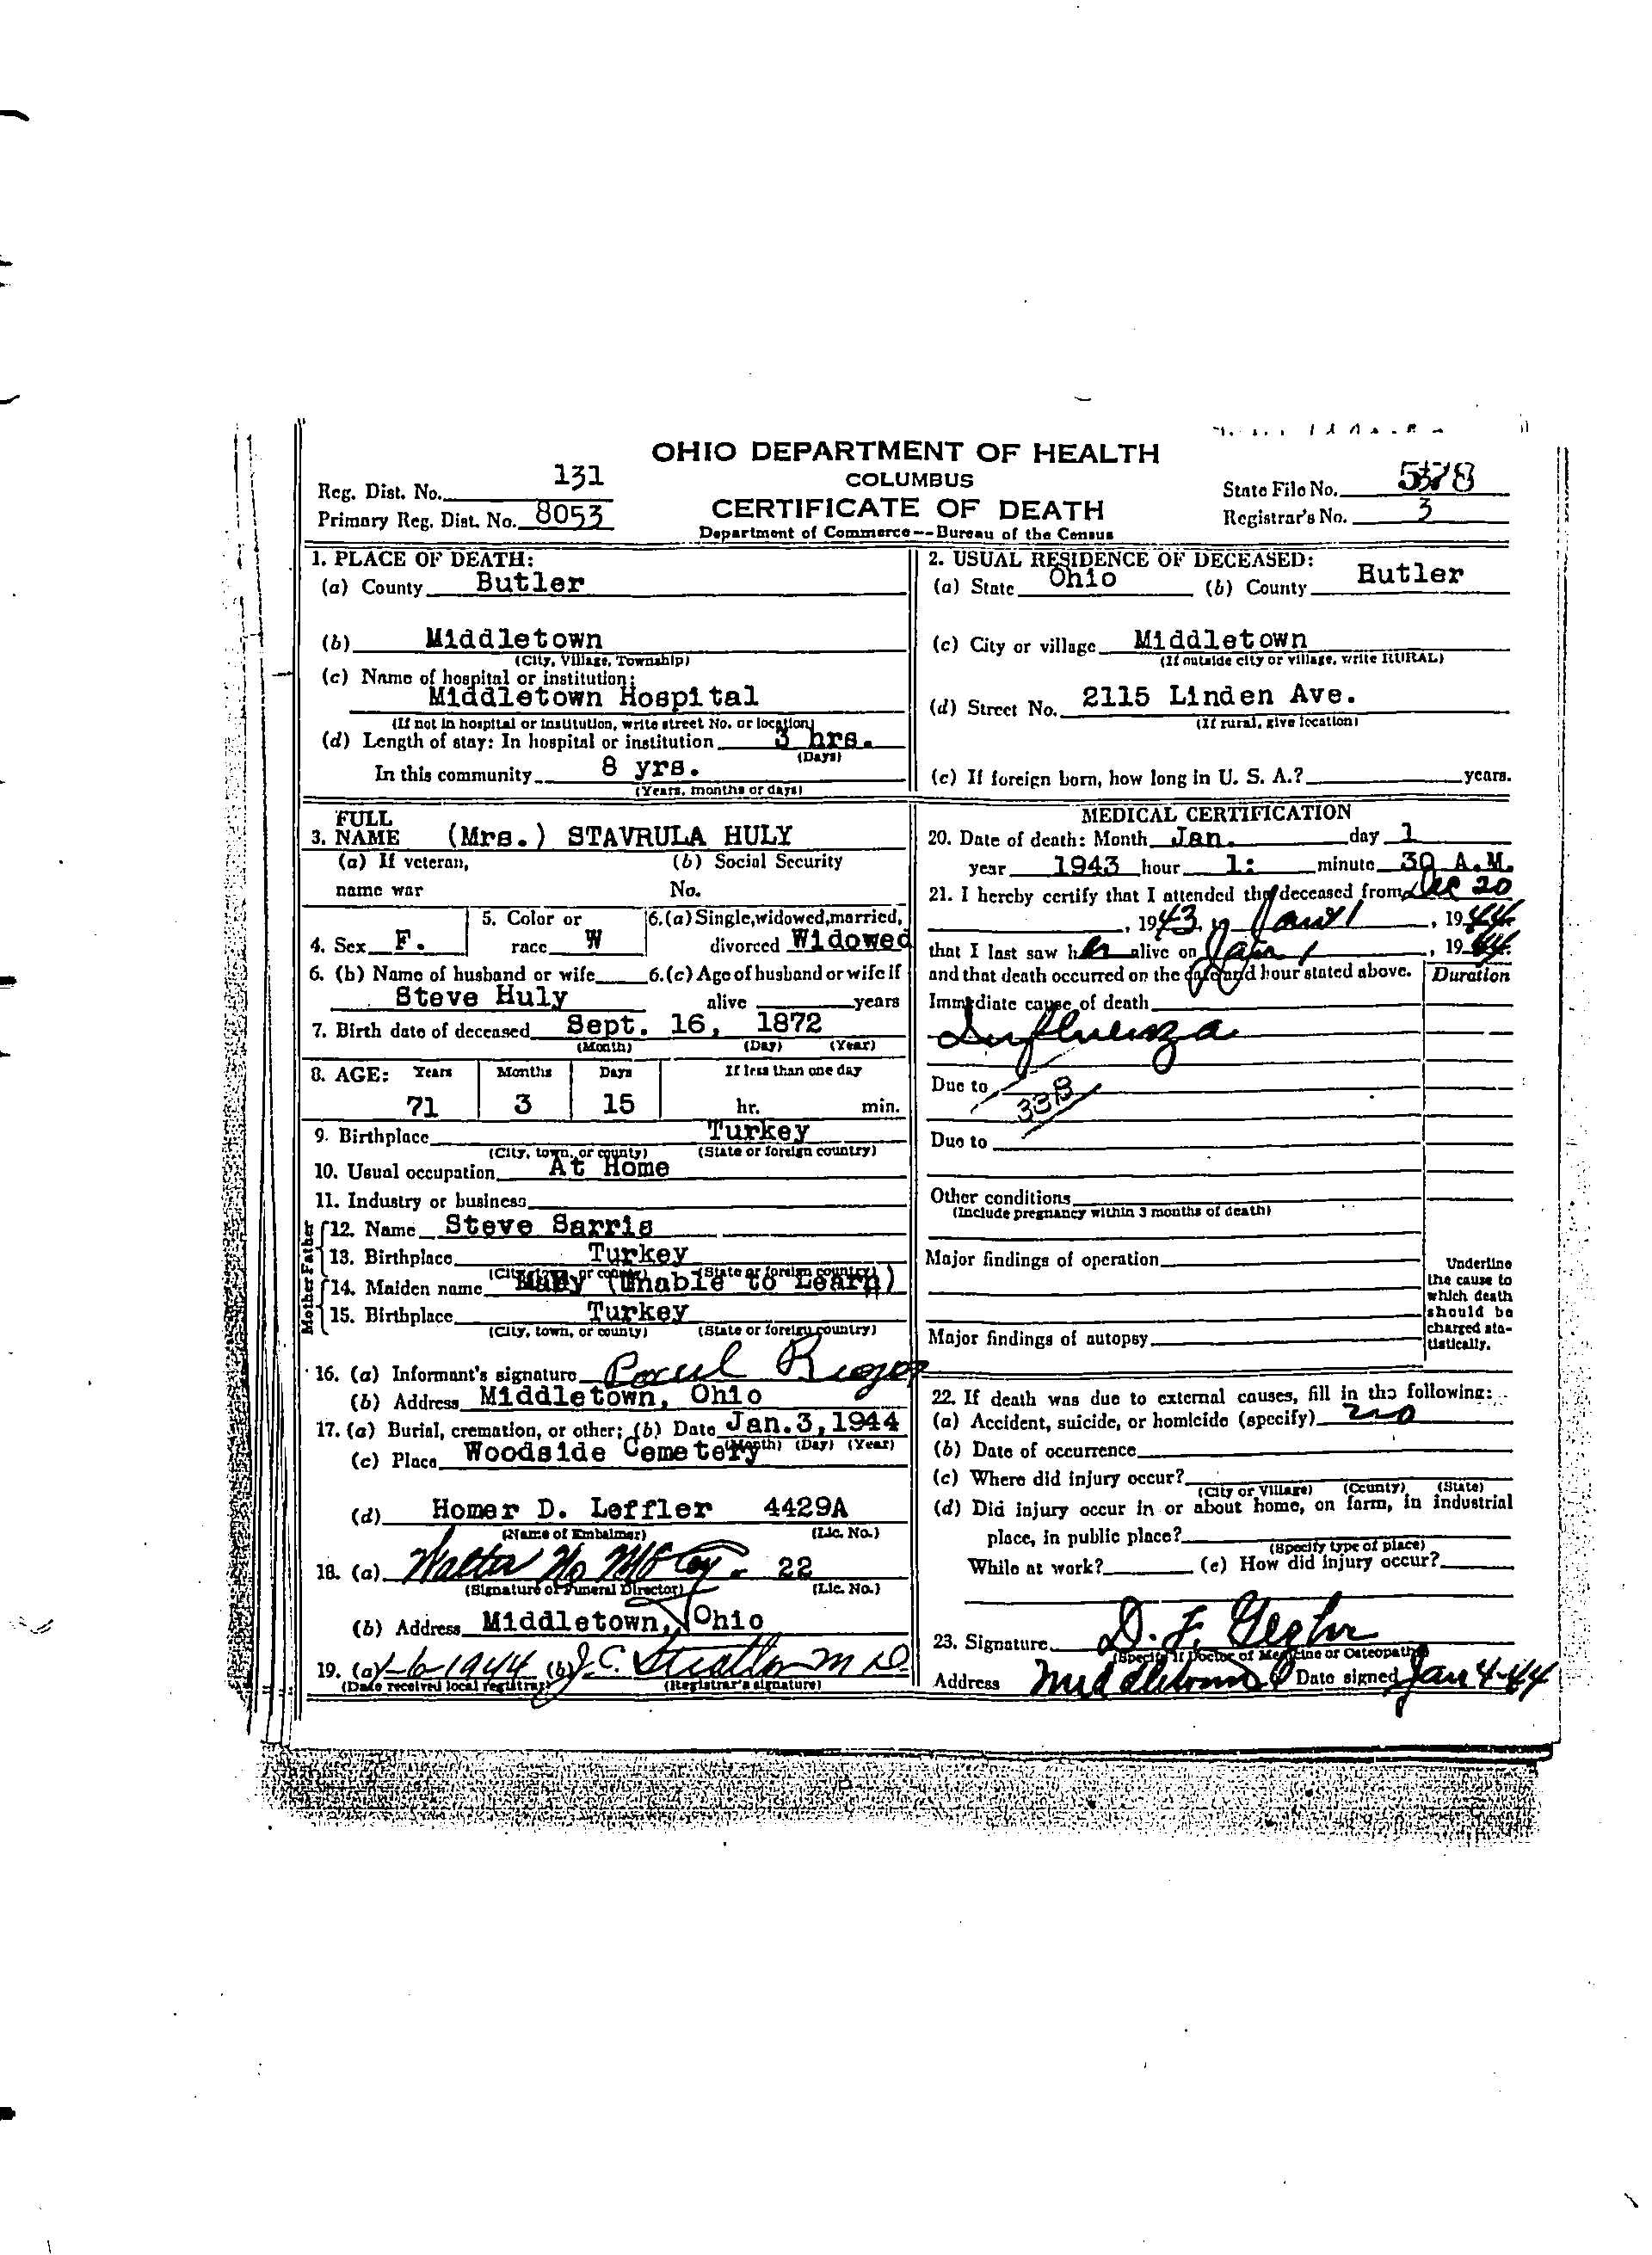 OHIO DEPARTMENT OF HEALTH
COLUMBUS
CERTIFICATE OF DEATH
Department of Commerce--Bureau of the Census
Reg. Dist. No. 131
Primary Reg. Dist. No. 8053
State File No.
Registrar's No. 3
1. PLACE OF DEATH:
(a) County Butler
(b) Middletown
(City, Village, Township)
(c) Name of hospital or institution:
Middletown Hospital
(If not in hospital or institution, write street No. or location)
(d) Length of stay: In hospital or institution 3 hrs.
(Days)
In this community 8 yrs.
(Years, months or days)
2. USUAL RESIDENCE OF DECEASED:
(a) State Ohio (b) County Butler
(c) City or village Middletown
(If outside city or village, write RURAL)
(d) Street No. 2115 Linden Ave.
(If rural, give location)
(e) If foreign born, how long in U. S. A.? years.
3. FULL NAME (Mrs.) STAVRULA HULY
(a) If veteran, (b) Social Security
name war No.
4. Sex F. 5. Color or race W 6. (a) Single, widowed, married, divorced Widowed
6. (b) Name of husband or wife 6. (c) Age of husband or wife if
Steve Huly alive years
7. Birth date of deceased Sept. 16, 1872
(Month) (Day) (Year)
8. AGE: Years Months Days If less than one day
71 3 15 hr. min.
9. Birthplace Turkey
(City, town, or county) (State or foreign country)
10. Usual occupation At Home
11. Industry or business
Father
12. Name Steve Sarris
13. Birthplace Turkey
(City, town, or county) (State or foreign country)
Mother
14. Maiden name Mary (Unable to Learn)
15. Birthplace Turkey
(City, town, or county) (State or foreign country)
16. (a) Informant's signature
(b) Address Middletown, Ohio
17. (a) Burial, cremation, or other; (b) Date Jan. 3, 1944
(Month) (Day) (Year)
(c) Place Woodside Cemetery
(d) Homer D. Leffler 4429A
(Name of Embalmer) (Lic. No.)
18. (a) Walter 22
(Signature of Funeral Director) (Lic. No.)
(b) Address Middletown, Ohio
19. (a) 1-6-1944 (b) J. C. M D
(Date received local registrar) (Registrar's signature)
MEDICAL CERTIFICATION
20. Date of death: Month Jan. day 1
year 1943 hour 1: minute 30 A.M.
21. I hereby certify that I attended the deceased from Dec 20
, 1943, Jan 1, 1944
that I last saw her alive on Jan 1, 1944.
and that death occurred on the date and hour stated above.
Duration
Immediate cause of death
Influenza
Due to
33B
Due to
Other conditions
(Include pregnancy within 3 months of death)
Major findings of operation
Major findings of autopsy
Underline
the cause to
which death
should be
charged sta-
tistically.
22. If death was due to external causes, fill in the following:
(a) Accident, suicide, or homicide (specify) no
(b) Date of occurrence
(c) Where did injury occur?
(City or Village) (County) (State)
(d) Did injury occur in or about home, on farm, in industrial
place, in public place?
(Specify type of place)
While at work? (e) How did injury occur?
23. Signature D. F.
(Specify if Doctor of Medicine or Osteopath)
Address Middletown O Date signed Jan 4-44